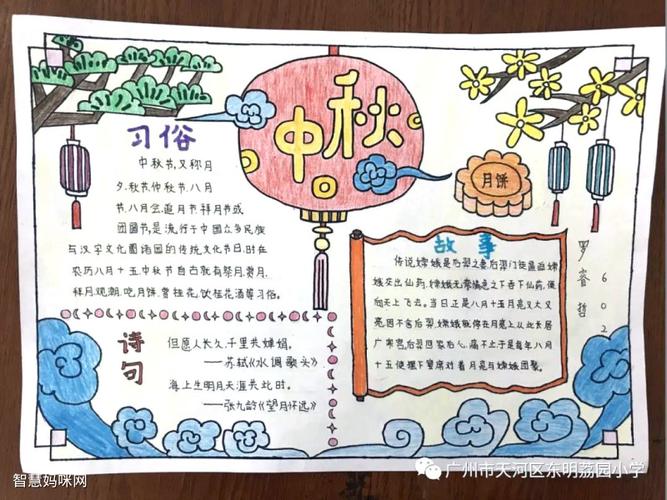 中秋
习俗
中秋节,又称月
夕、秋节、仲秋节、八月
节、八月会、追月节、拜月节或
团圆节,是流行于中国众多民族
与汉字文化圈诸国的传统文化节日,时在
农历八月十五;中秋节自古就有祭月、赏月、
拜月、观潮、吃月饼、赏桂花、饮桂花酒等习俗。
诗句
但愿人长久,千里共婵娟。
——苏轼《水调歌头》
海上生明月天涯共此时。
——张九龄《望月怀远》
月饼
故事
传说,嫦娥是后羿之妻后羿门徒逼迫嫦
娥交出仙药,嫦娥无奈情急之下吞下仙药,便
向天上飞去。当日正是八月十五月亮又大又
亮因不舍后羿,嫦娥就停在月亮上从此长居
广寒宫,后羿回家后心痛不止于是每年八月
十五便摆下宴席对着月亮与嫦娥团聚。
罗睿哲
602
智慧妈咪网
广州市天河区东明荔园小学